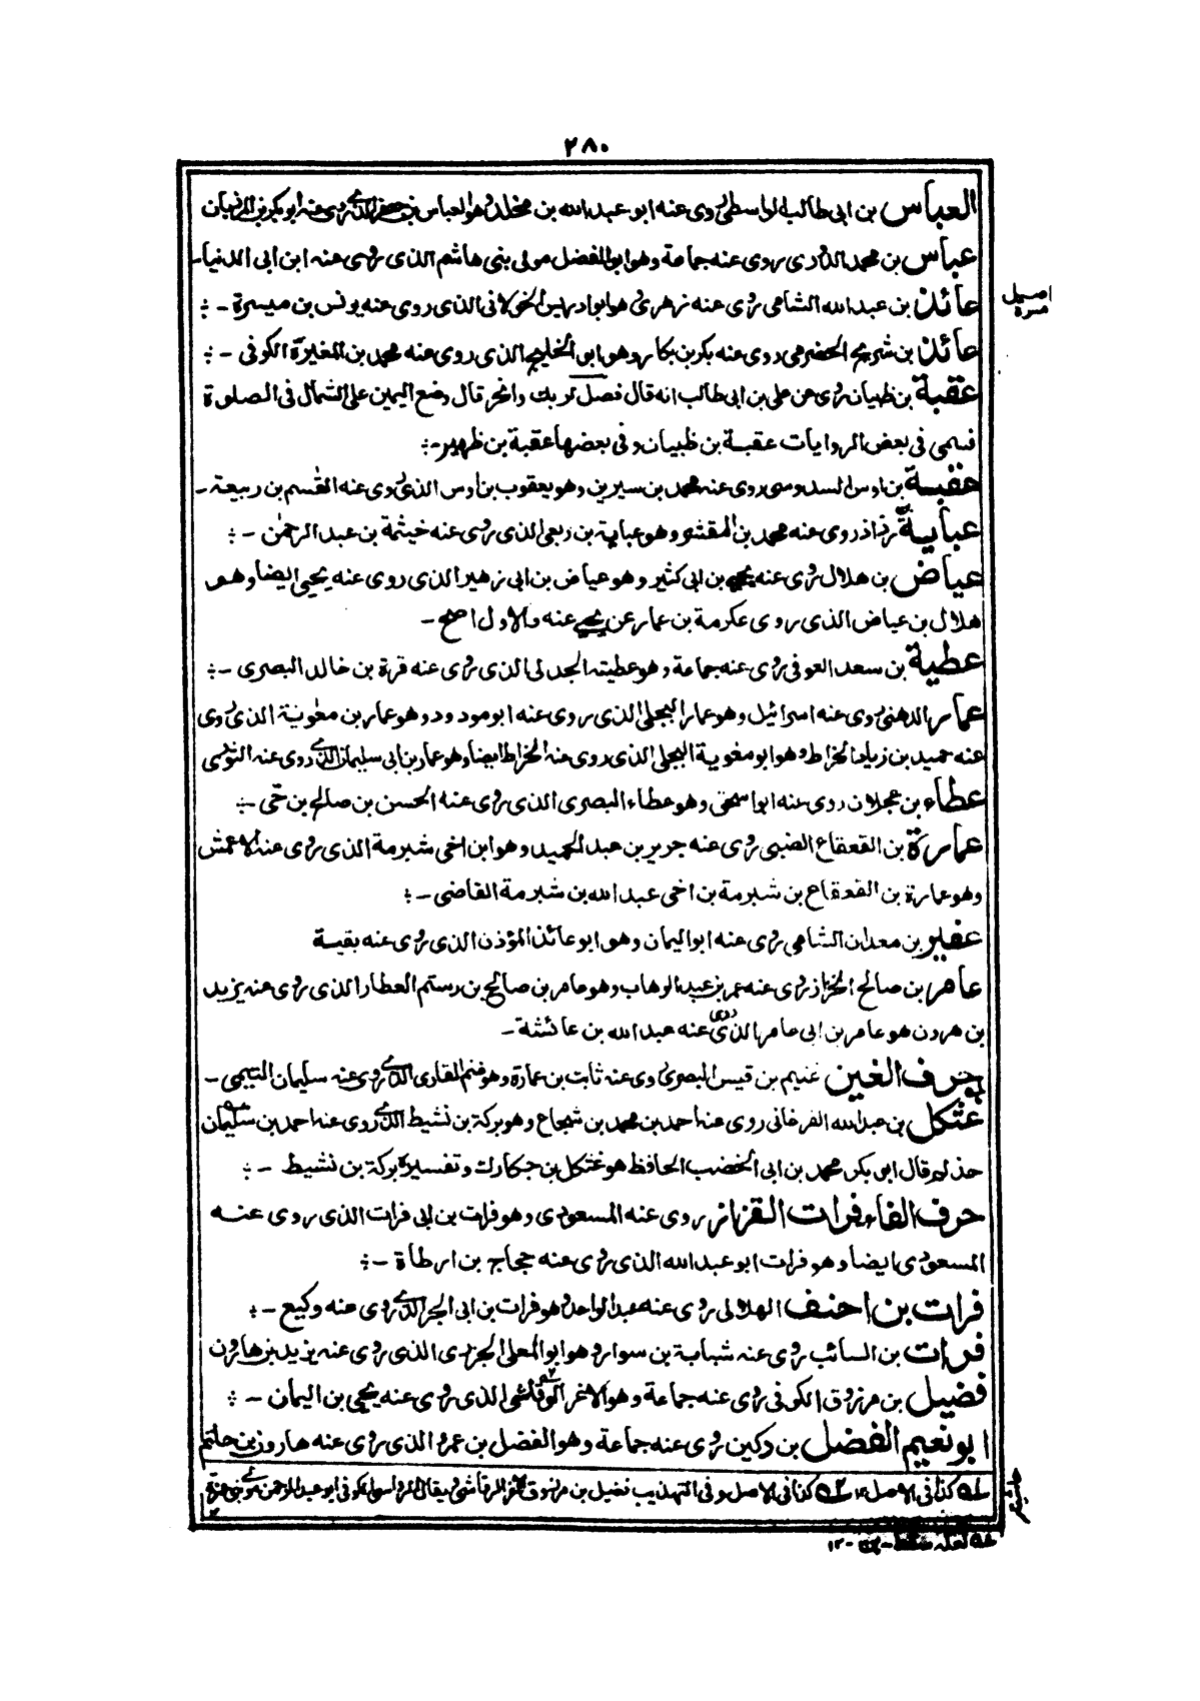 ٢٨٠
العباس بن ابى طالب الواسطى روى عنه ابو عبد الله بن مخلد وهو العباس بن جعفر الذى روى عنه ابو بكر بن المرزبان
عباس بن محمد الدورى روى عنه جماعة وهو ابو الفضل مولى بنى هاشم الذى روى عنه ابن ابى الدنيا-
عائذ بن عبد الله الشامى روى عنه زهرى وهو ابو ادريس الخولانى الذى روى عنه يونس بن ميسرة -:
عائذ بن شريح الحضرمى روى عنه بكر بن بكار وهو ابن الخليج الذى روى عنه محمد بن المغيرة الكوفى -:
عقبة بن ظبيان روى عن على بن ابى طالب انه قال فصل لربك وانحر قال وضع اليمين على الشمال فى الصلوة
فسمى فى بعض الروايات عقبة بن ظبيان وفى بعضها عقبة بن ظهير-:
عقبة بن اوس السدوسى روى عنه محمد بن سيرين وهو يعقوب بن اوس الذى روى عنه القسم بن ربيعة -
عباية روى عنه محمد بن المنتشر وهو عباية بن ربعى الذى روى عنه خيثمة بن عبد الرحمن -:
عياض بن هلال روى عنه يحيى بن ابى كثير وهو عياض بن ابى زهير الذى روى عنه يحيى ايضا وهو
هلال بن عياض الذى روى عكرمة بن عمار عن يحيى عنه والاول اصح -
عطية بن سعد العوفى روى عنه جماعة وهو عطية الجدلى الذى روى عنه قرة بن خالد البصرى -:
عمار الدهنى روى عنه اسرائيل وهو عمار البجلى الذى روى عنه ابو مودود وهو عمار بن معوية الذى روى
عنه حميد بن زياد الخراط وهو ابو معوية البجلى الذى روى عنه الخراط ايضا وهو عمار بن ابى سليمان الذى روى عنه الثورى
عطاء بن عجلان روى عنه ابو اسحق وهو عطاء البصرى الذى روى عنه الحسن بن صالح بن حى -:
عمارة بن القعقاع الضبى روى عنه جرير بن عبد الحميد وهو ابن اخى شبرمة الذى روى عنه الاعمش
وهو عمارة بن القعقاع بن شبرمة بن اخى عبد الله بن شبرمة القاضى -:
عفير بن معدان الشامى روى عنه ابو اليمان وهو ابو عائذ المؤذن الذى روى عنه بقية
عامر بن صالح الخزاز روى عنه عمر بن عبد الوهاب وهو عامر بن صالح بن رستم العطار الذى روى عنه يزيد
بن هرون هو عامر بن ابى عامر الذى روى عنه عبد الله بن عائشة -
حرف الغين غنيم بن قيس البصرى روى عنه ثابت بن عمارة وهو غنم القارى الذى روى عنه سليمان التيمى -
غتكل بن عبد الله الفرغانى روى عنه احمد بن محمد بن شجاع وهو بركة بن نشيط الذى روى عنه احمد بن سليمان
حذلم قال ابو بكر محمد بن ابى الخضب الحافظ هو غتكل بن حكارك وتفسيره بركة بن نشيط -:
حرف الفاء فرات القزاز روى عنه المسعودى وهو فرات بن ابى فرات الذى روى عنه
المسعودى ايضا وهو فرات ابو عبد الله الذى روى عنه حجاج بن ارطاة -:
فرات بن احنف الهلالى روى عنه عبد الواحد وهو فرات بن ابى البحر الذى روى عنه وكيع -:
فرات بن السائب روى عنه شبابة بن سوار وهو ابو المعلى الجزرى الذى روى عنه يزيد بن هارون
فضيل بن مرزوق الكوفى روى عنه جماعة وهو الاغر الوقاشى الذى روى عنه يحيى بن اليمان -:
ابو نعيم الفضل بن دكين روى عنه جماعة وهو الفضل بن عمرو الذى روى عنه هارون بن حاتم
كذا فى الاصل ١٢ كذا فى الاصل وفى التهذيب فضيل بن مرزوق الاغر الرقاشى ويقال الرواسى الكوفى ابو عبد الرحمن مولى بنى عنزة